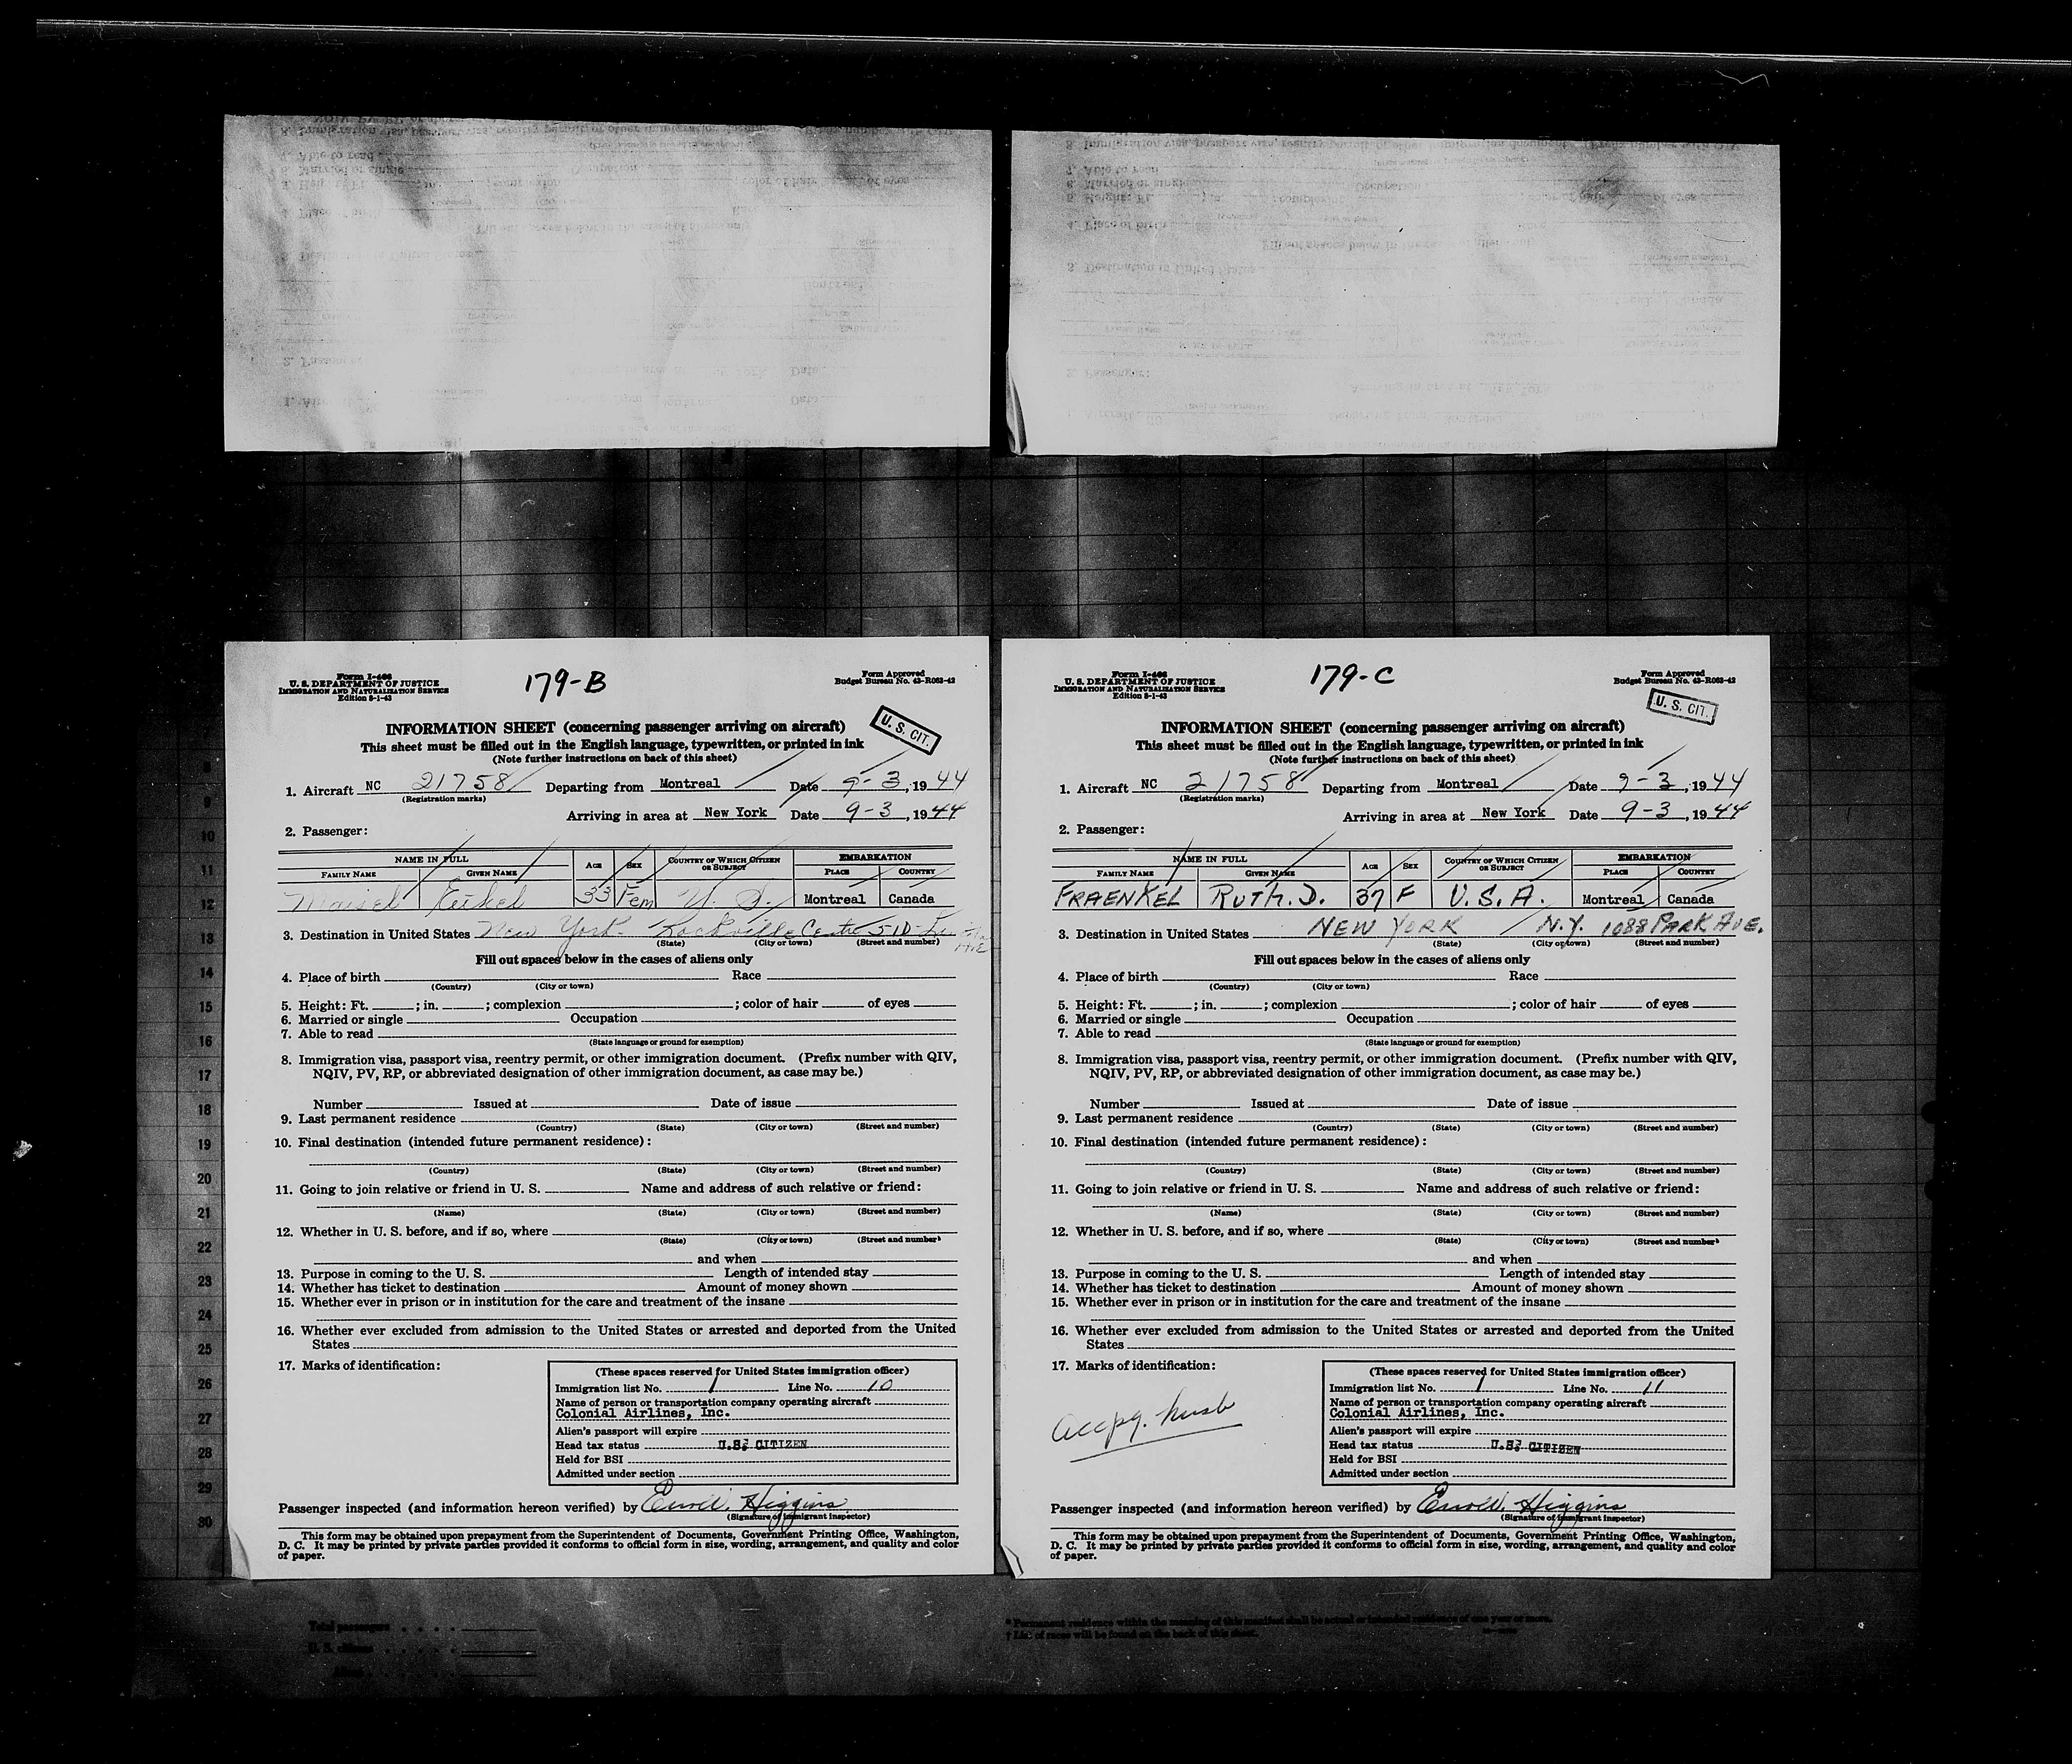 179-B
Form I-466
U. S. DEPARTMENT OF JUSTICE
IMMIGRATION AND NATURALIZATION SERVICE
Edition 8-1-43
Form Approved
Budget Bureau No. 43-R063-42
U. S. CIT.
INFORMATION SHEET (concerning passenger arriving on aircraft)
This sheet must be filled out in the English language, typewritten, or printed in ink
(Note further instructions on back of this sheet)
1. Aircraft NC 21758 Departing from Montreal Date 9-3, 1944
(Registration marks)
Arriving in area at New York Date 9-3, 1944
2. Passenger:
NAME IN FULL AGE SEX COUNTRY OF WHICH CITIZEN OR SUBJECT EMBARKATION
FAMILY NAME GIVEN NAME PLACE COUNTRY
Maisel 33 Fem U. S. Montreal Canada
3. Destination in United States New York Rockville Centre
(State) (City or town) (Street and number)
Fill out spaces below in the cases of aliens only
4. Place of birth Race
(Country) (City or town)
5. Height: Ft. ; in. ; complexion ; color of hair of eyes
6. Married or single Occupation
7. Able to read
(State language or ground for exemption)
8. Immigration visa, passport visa, reentry permit, or other immigration document. (Prefix number with QIV,
NQIV, PV, RP, or abbreviated designation of other immigration document, as case may be.)
Number Issued at Date of issue
9. Last permanent residence
(Country) (State) (City or town) (Street and number)
10. Final destination (intended future permanent residence):
(Country) (State) (City or town) (Street and number)
11. Going to join relative or friend in U. S. Name and address of such relative or friend:
(Name) (State) (City or town) (Street and number)
12. Whether in U. S. before, and if so, where
(State) (City or town) (Street and number)
and when
13. Purpose in coming to the U. S. Length of intended stay
14. Whether has ticket to destination Amount of money shown
15. Whether ever in prison or in institution for the care and treatment of the insane
16. Whether ever excluded from admission to the United States or arrested and deported from the United
States
17. Marks of identification:
(These spaces reserved for United States immigration officer)
Immigration list No. 1 Line No. 10
Name of person or transportation company operating aircraft
Colonial Airlines, Inc.
Alien's passport will expire
Head tax status U.S. CITIZEN
Held for BSI
Admitted under section
Passenger inspected (and information hereon verified) by Higgins
(Signature of immigrant inspector)
This form may be obtained upon prepayment from the Superintendent of Documents, Government Printing Office, Washington,
D. C. It may be printed by private parties provided it conforms to official form in size, wording, arrangement, and quality and color
of paper.
179-C
Form I-466
U. S. DEPARTMENT OF JUSTICE
IMMIGRATION AND NATURALIZATION SERVICE
Edition 8-1-43
Form Approved
Budget Bureau No. 43-R063-42
U. S. CIT.
INFORMATION SHEET (concerning passenger arriving on aircraft)
This sheet must be filled out in the English language, typewritten, or printed in ink
(Note further instructions on back of this sheet)
1. Aircraft NC 21758 Departing from Montreal Date 9-3, 1944
(Registration marks)
Arriving in area at New York Date 9-3, 1944
2. Passenger:
NAME IN FULL AGE SEX COUNTRY OF WHICH CITIZEN OR SUBJECT EMBARKATION
FAMILY NAME GIVEN NAME PLACE COUNTRY
FRAENKEL RUTH. D. 37 F U. S. A. Montreal Canada
3. Destination in United States NEW YORK N.Y. 1088 PARK AVE.
(State) (City or town) (Street and number)
Fill out spaces below in the cases of aliens only
4. Place of birth Race
(Country) (City or town)
5. Height: Ft. ; in. ; complexion ; color of hair of eyes
6. Married or single Occupation
7. Able to read
(State language or ground for exemption)
8. Immigration visa, passport visa, reentry permit, or other immigration document. (Prefix number with QIV,
NQIV, PV, RP, or abbreviated designation of other immigration document, as case may be.)
Number Issued at Date of issue
9. Last permanent residence
(Country) (State) (City or town) (Street and number)
10. Final destination (intended future permanent residence):
(Country) (State) (City or town) (Street and number)
11. Going to join relative or friend in U. S. Name and address of such relative or friend:
(Name) (State) (City or town) (Street and number)
12. Whether in U. S. before, and if so, where
(State) (City or town) (Street and number)
and when
13. Purpose in coming to the U. S. Length of intended stay
14. Whether has ticket to destination Amount of money shown
15. Whether ever in prison or in institution for the care and treatment of the insane
16. Whether ever excluded from admission to the United States or arrested and deported from the United
States
17. Marks of identification:
accpg. husb
(These spaces reserved for United States immigration officer)
Immigration list No. 1 Line No. 11
Name of person or transportation company operating aircraft
Colonial Airlines, Inc.
Alien's passport will expire
Head tax status U.S. CITIZEN
Held for BSI
Admitted under section
Passenger inspected (and information hereon verified) by Higgins
(Signature of immigrant inspector)
This form may be obtained upon prepayment from the Superintendent of Documents, Government Printing Office, Washington,
D. C. It may be printed by private parties provided it conforms to official form in size, wording, arrangement, and quality and color
of paper.
Total passengers
U. S. citizens
* Permanent residence within the meaning of this manifest shall be actual or intended residence of one year or more.
† List of races will be found on the back of this sheet.